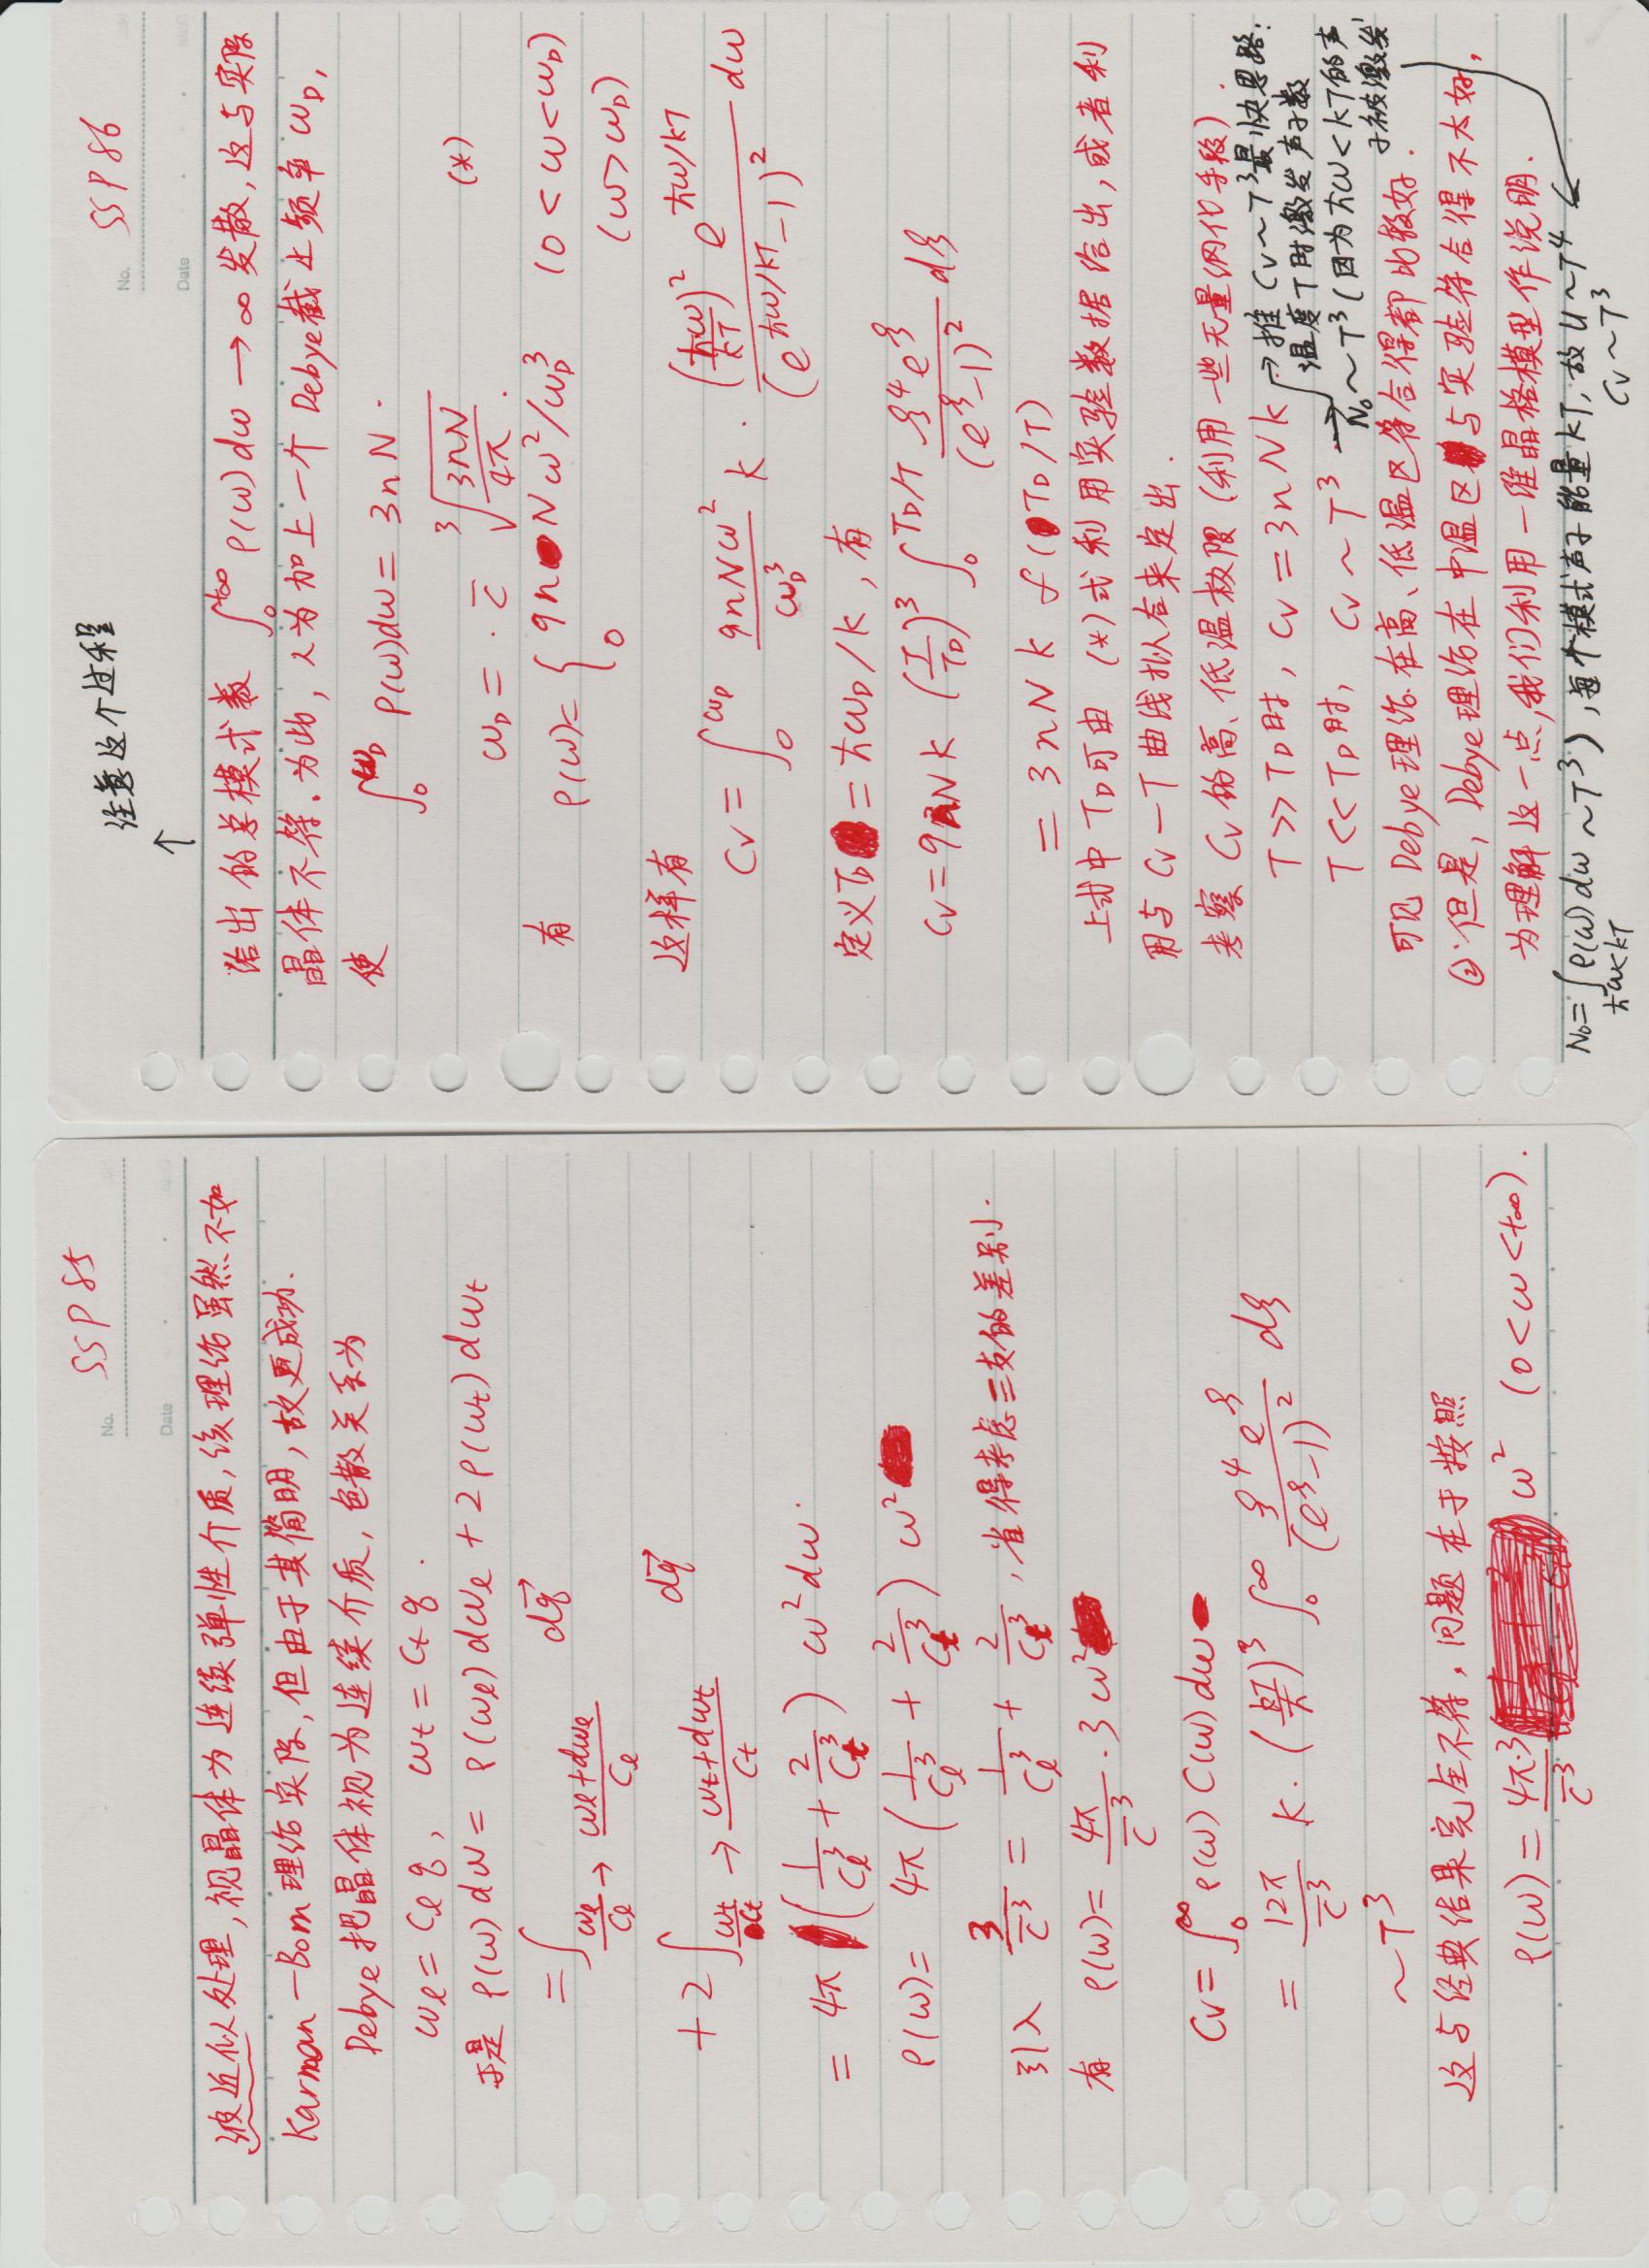 No. SSP 85
Date
波近似处理,视晶体为连续弹性介质,该理论虽然不如
Karman-Born理论实际,但由于其简明,故更成功.
Debye把晶体视为连续介质,色散关系为
ω_l = C_l q, ω_t = C_t q.
于是 ρ(ω)dω = ρ(ω_l)dω_l + 2ρ(ω_t)dω_t
= ∫_{ω_l/C_l → (ω_l+dω_l)/C_l} dq⃗
+ 2∫_{ω_t/C_t → (ω_t+dω_t)/C_t} dq⃗
= 4π (1/C_l³ + 2/C_t³) ω²dω.
ρ(ω) = 4π (1/C_l³ + 2/C_t³) ω²
引入 3/c̄³ = 1/C_l³ + 2/C_t³, 省得考虑三支的差别.
有 ρ(ω) = 4π/c̄³ · 3ω²
C_V = ∫₀^∞ ρ(ω) C(ω) dω
= 12π/c̄³ k·(kT/ħ)³ ∫₀^∞ ξ⁴e^ξ/(e^ξ-1)² dξ
~T³
这与经典结果完全不符,问题在于按照
ρ(ω) = 4π·3/c̄³ ω² (0<ω<+∞).
No. SSP 86
Date
注意这个过程
↑
给出的总模式数 ∫₀^{+∞} ρ(ω)dω → ∞ 发散,这与实际
晶体不符.为此,人为加上一个Debye截止频率ω_D,
使
∫₀^{ω_D} ρ(ω)dω = 3nN.
ω_D = · c̄ ∛(3nN/4π). (*)
有 ρ(ω) = { 9nNω²/ω_D³ (0<ω<ω_D)
0 (ω>ω_D)
这样有
C_V = ∫₀^{ω_D} 9nNω²/ω_D³ k · (ħω/kT)² e^{ħω/kT}/(e^{ħω/kT}-1)² dω
定义T_D = ħω_D/k, 有
C_V = 9nNk (T/T_D)³ ∫₀^{T_D/T} ξ⁴e^ξ/(e^ξ-1)² dξ
= 3nNk f(T_D/T)
上式中T_D可由(*)式利用实验数据给出,或者利
用与C_V-T曲线拟合来定出.
考察C_V的高、低温极限(利用一些无量纲化手段).
T>>T_D时, C_V = 3nNk
T<<T_D时, C_V ~ T³
→推C_V~T³最快思路:
温度T时激发声子数
N₀~T³(因为ħω<kT的声
子被激发
可见Debye理论在高、低温区符合得都比较好.
②但是,Debye理论在中温区与实验符合得不太好,
为理解这一点,我们利用一维晶格模型作说明.
N₀=∫_{ħω<kT} ρ(ω)dω ~T³),每个模式声子能量kT,故U~T⁴
C_V~T³